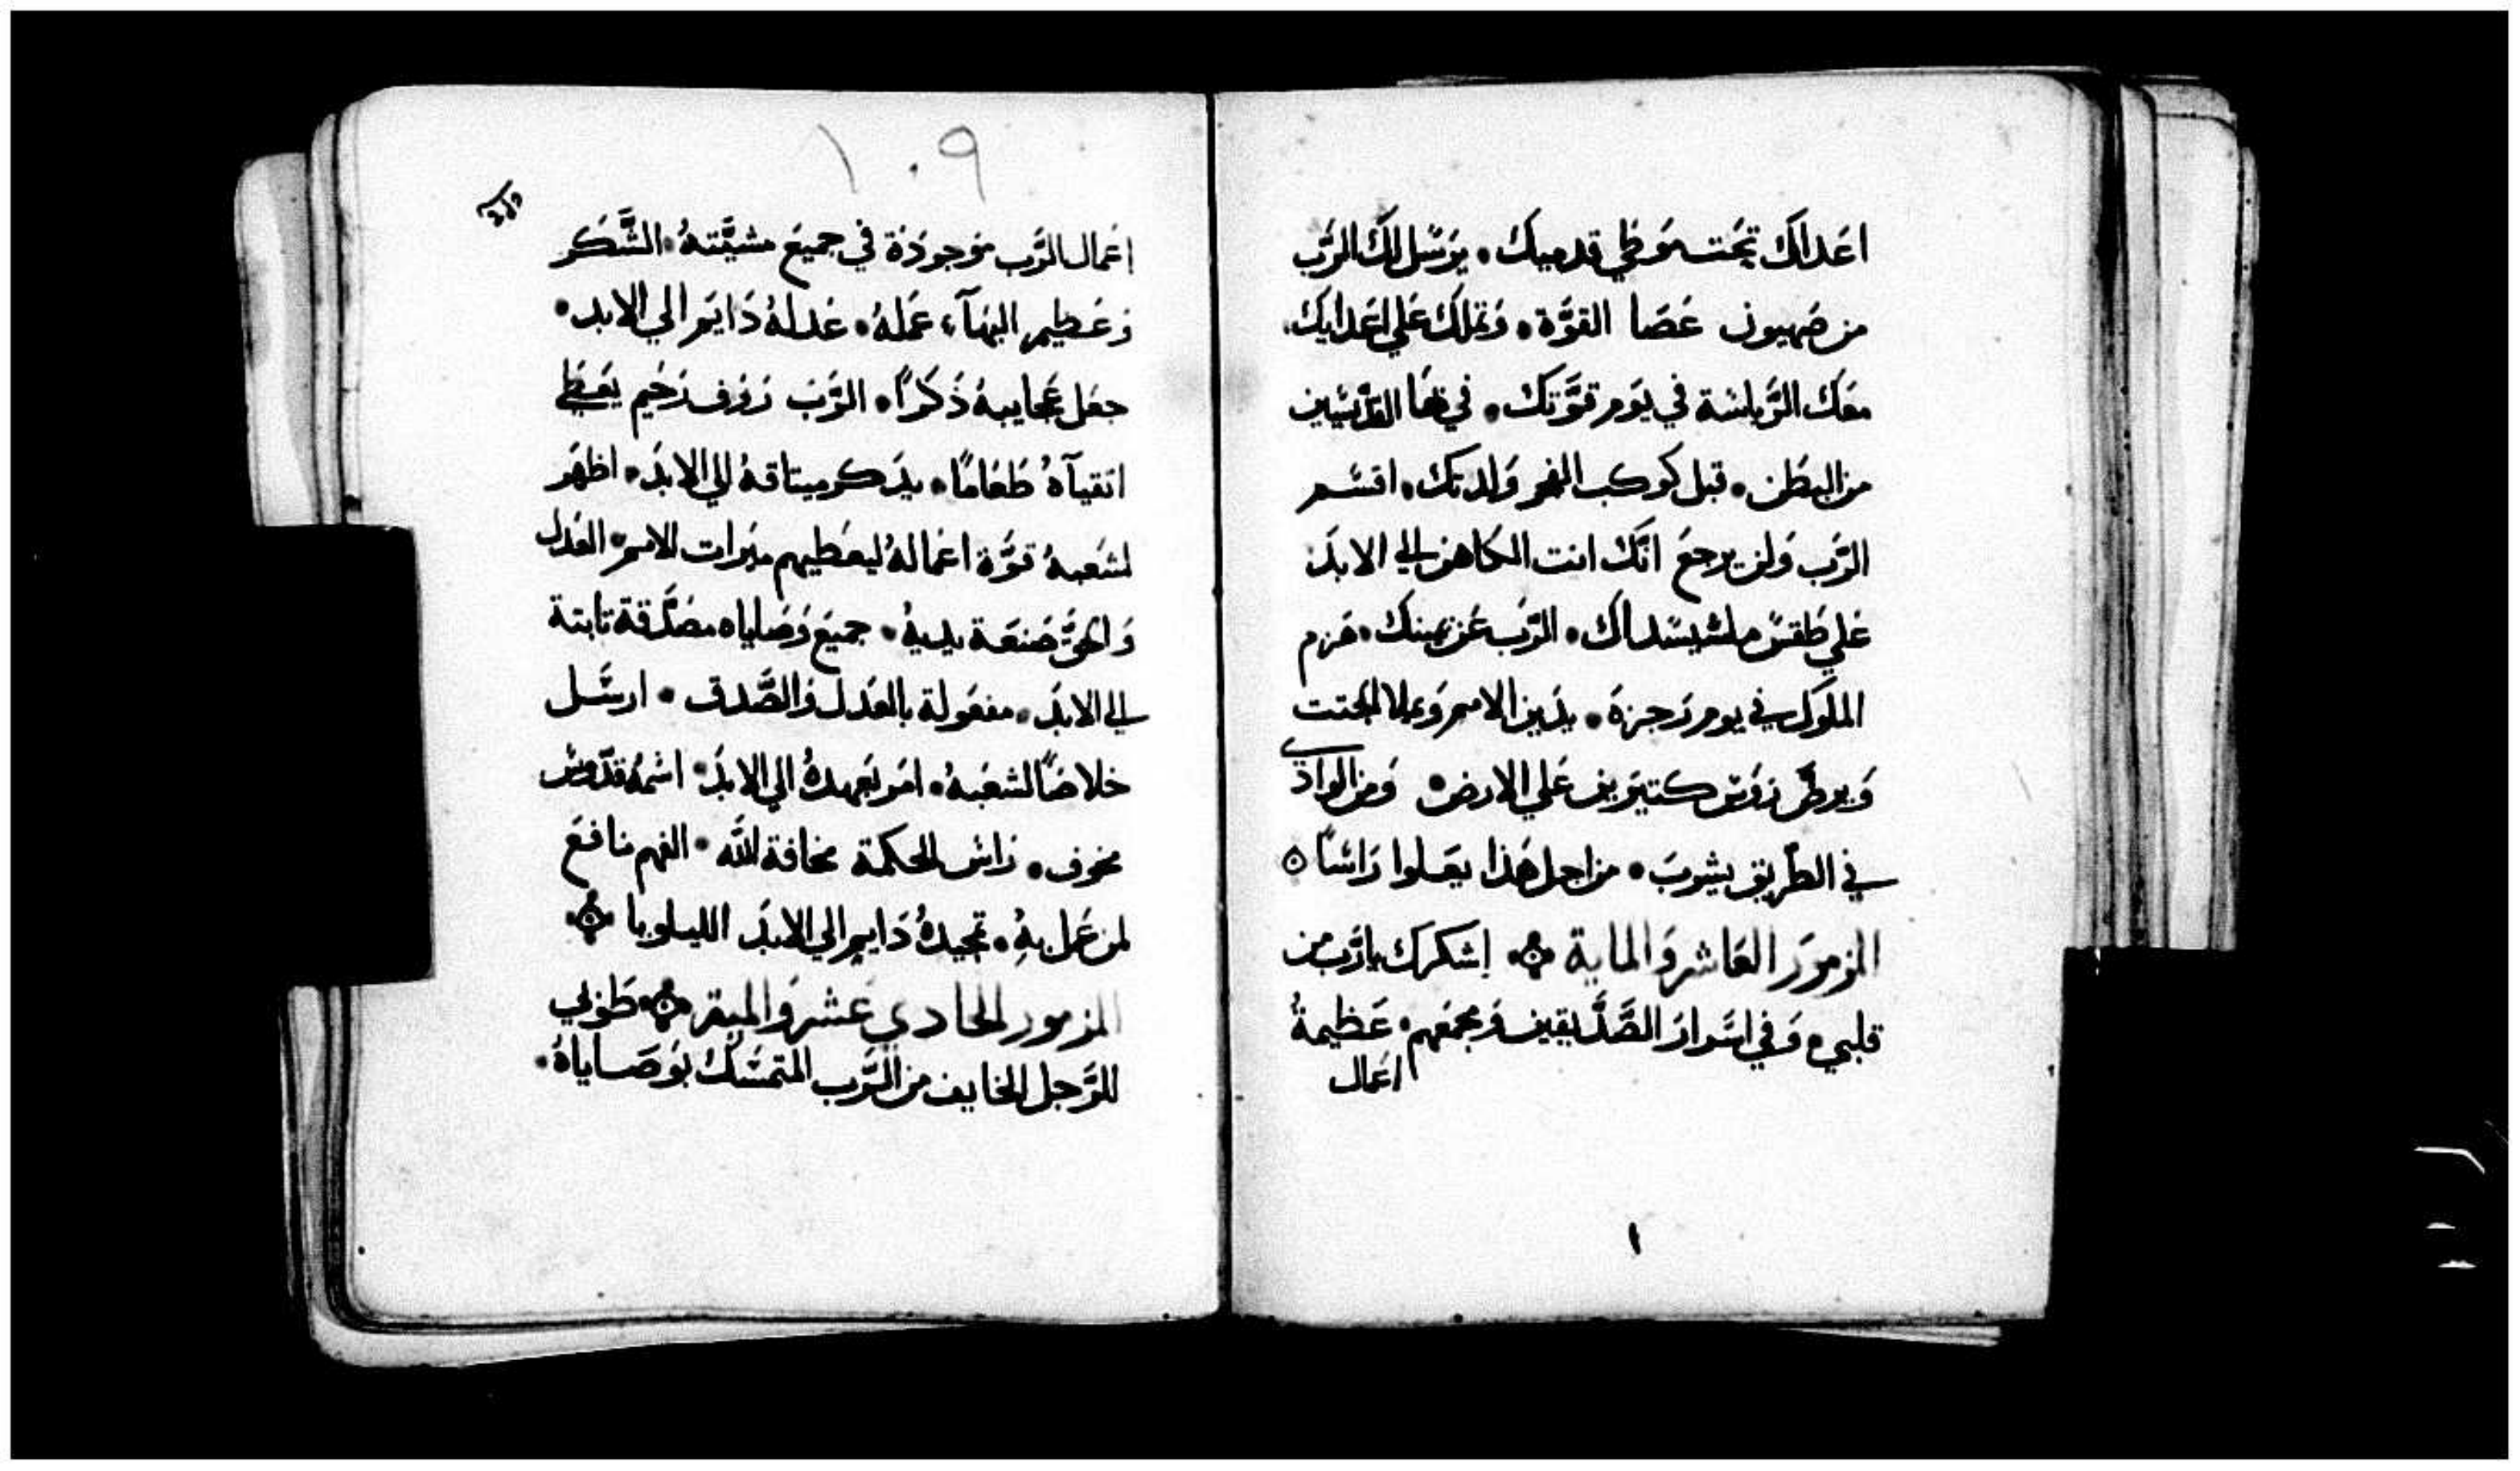 اعَداَك تحَت موَطي قدميك • يرَسُل لكَ الرَّب
من صَهيون عَصَا القوَّة • وَتملك عَلي اعَدايك •
معَك الرَّياسَة في يوَم قوَّتك • في بهَا القدَّيسَين
من البطَن • قبل كوكب الفجر وَلدتك • اقسَم
الرَّب وَلن يرجعَ انَّك انت الكاهن الي الابدَ
عَلي طقَسَ ملشيسَداك • الرَّب عَن يمينك • هَزم
الملوَك في يوم رَجزهَ • يدَين الامم وَيملا الجتت
وَيرضّ رَوَس كتيرَين عَلي الارض • وَمن الوادَي
في الطَّريق يشربَ • من اجل هَذا يعَلوا رَاسًا ٥
المزموَر العَاشر وَالماية اشكرك يارَّب من
قلبي • وَفي اسَرار الصَّدَّيقين وَمجمَعهم • عَظيمةُ
اعَمال
١
١٠٩
اعَمال الرَّب موَجودَة في جميعَ مشيَّتهُ • الشَّكر
وَعَظيم البهآء عَملهُ • عَدلهُ دَايَم الي الابد •
جعَل عَجايبهُ ذَكرًا • الرَّبَ رَوَف رَحَيم يعَطي
اتقيآهُ طَعَامًا • يذَكر ميتاقهُ الي الابدَ • اظهَر
لشَعبهُ قوَّة اعَمالهُ ليعَطيهم ميرَات الامم • العَدل
وَالحَقَّ صَنعَة يديهُ • جميعَ وَصَاياه مصَدَّقة تابتة
الي الابدَ • مفعَولة بالعَدل وَالصَّدق • ارسَل
خلاصًَا لشعَبهُ • امَر بعَهدهُ الي الابدَ • اسَمهُ قدَّوسَ
مخوف • رَاسَ الحكمة مخافة اللَّه • الفهم نافعَ
لمن عَمل بهِ • تمجيدهُ دَايم الي الابدَ الليلويا
المزمور الحادي عَشر وَالمية طَوبي
للرَّجل الخايف من الرَّب المتمسَّك بوَصَاياهُ •